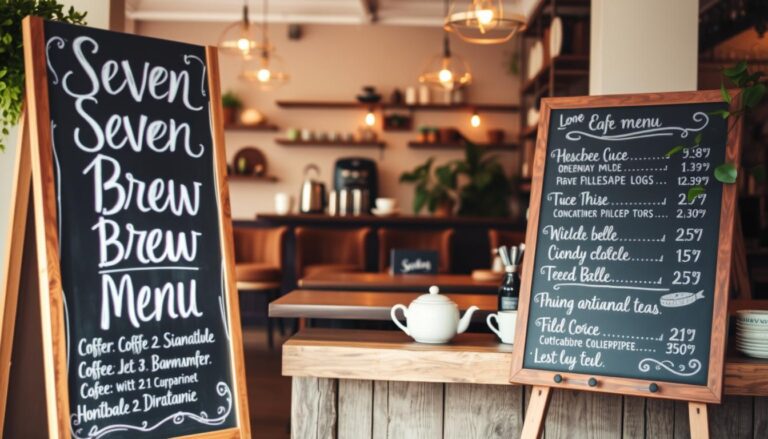 Seven
Seven
Brew
Brew
Menu
Coffer. Coffe 2 Sianatule
Coffee Jet 3. Barmumfer.
Cofee: with 21 Curparinet
Hontbale 2 Diratanie
Lone Eafe menu
Hescbee Cuce 9.39
Oneeinay Mlde 1.39
Rave Fillesape Logs 12.39
Tuce Thise
Concatiner Pilcep Tors 2.30
Wictde belle 25
Ciendy clotele 15
Teed Balle 25
Thuing artianal teas
Fild Corce 21
Cuticabbre Colierpipee 350
Lest luy teil.